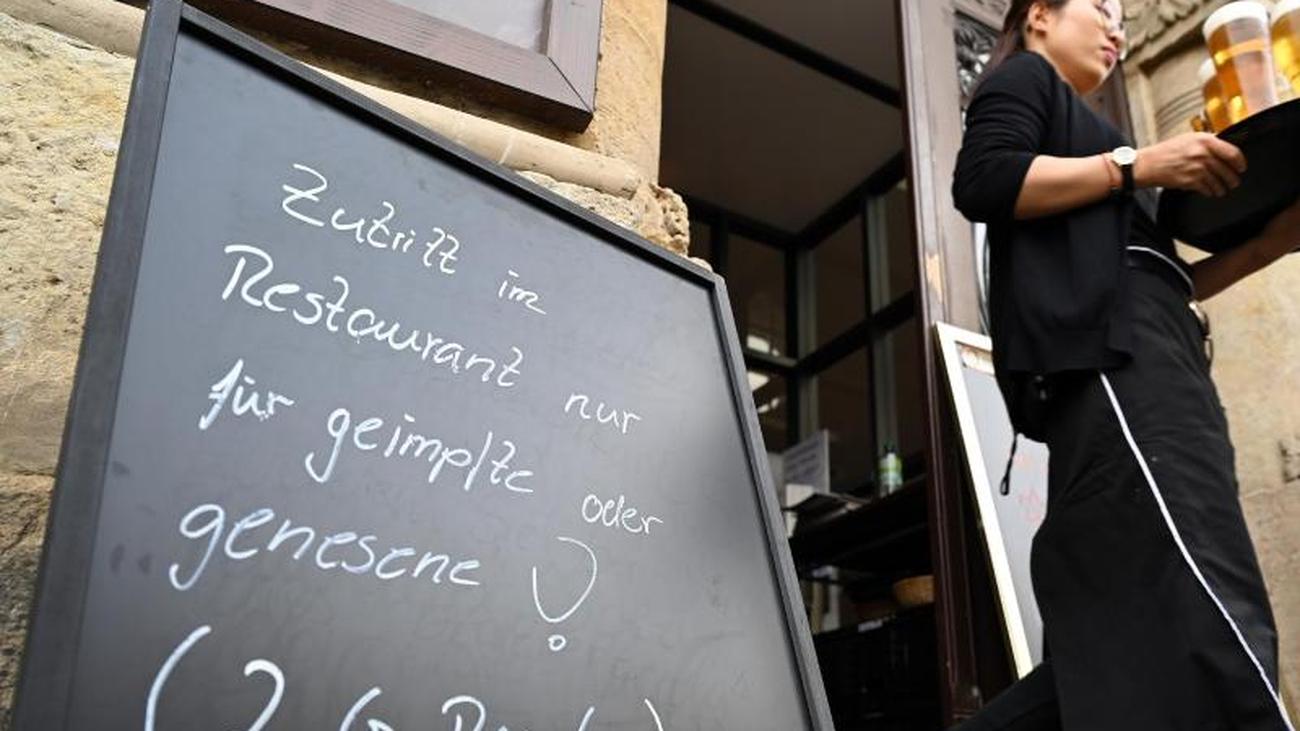 Zutritt im
Restaurant nur
für geimpfte oder
genesene !
(2 G